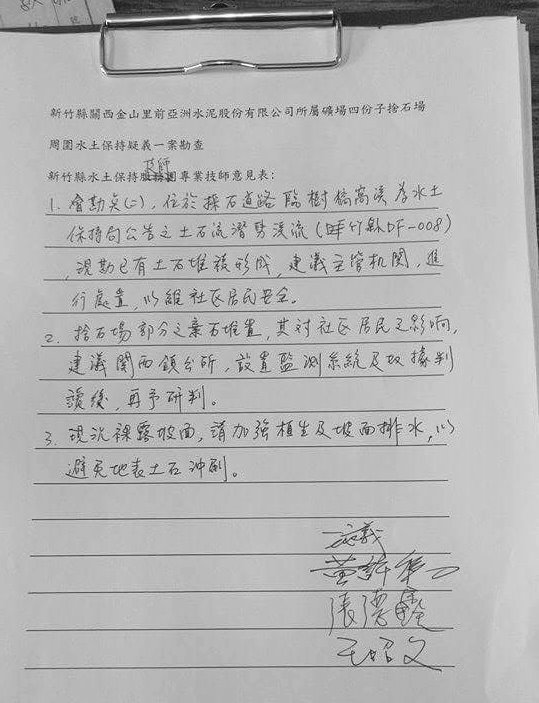 新竹縣關西金山里前亞洲水泥股份有限公司所屬礦場四份子捨石場
周圍水土保持疑義一案勘查
技師
新竹縣水土保持服務團專業技師意見表：
1. 會勘點(二)，位於採石道路臨樹橋窩溪為水土
保持局公告之土石流潛勢溪流（竹縣DF-008）
，現勘已有土石堆積形成，建議主管机関，進
行處置，以維社区居民安全。
2. 捨石場部分之棄石堆置，其対社区居民之影响，
建議関西鎮公所，設置監測系統及数據判
讀後，再予研判。
3. 現況裸露坡面，請加強植生及坡面排水，以
避免地表土石冲刷。
張德鑫
王昭文